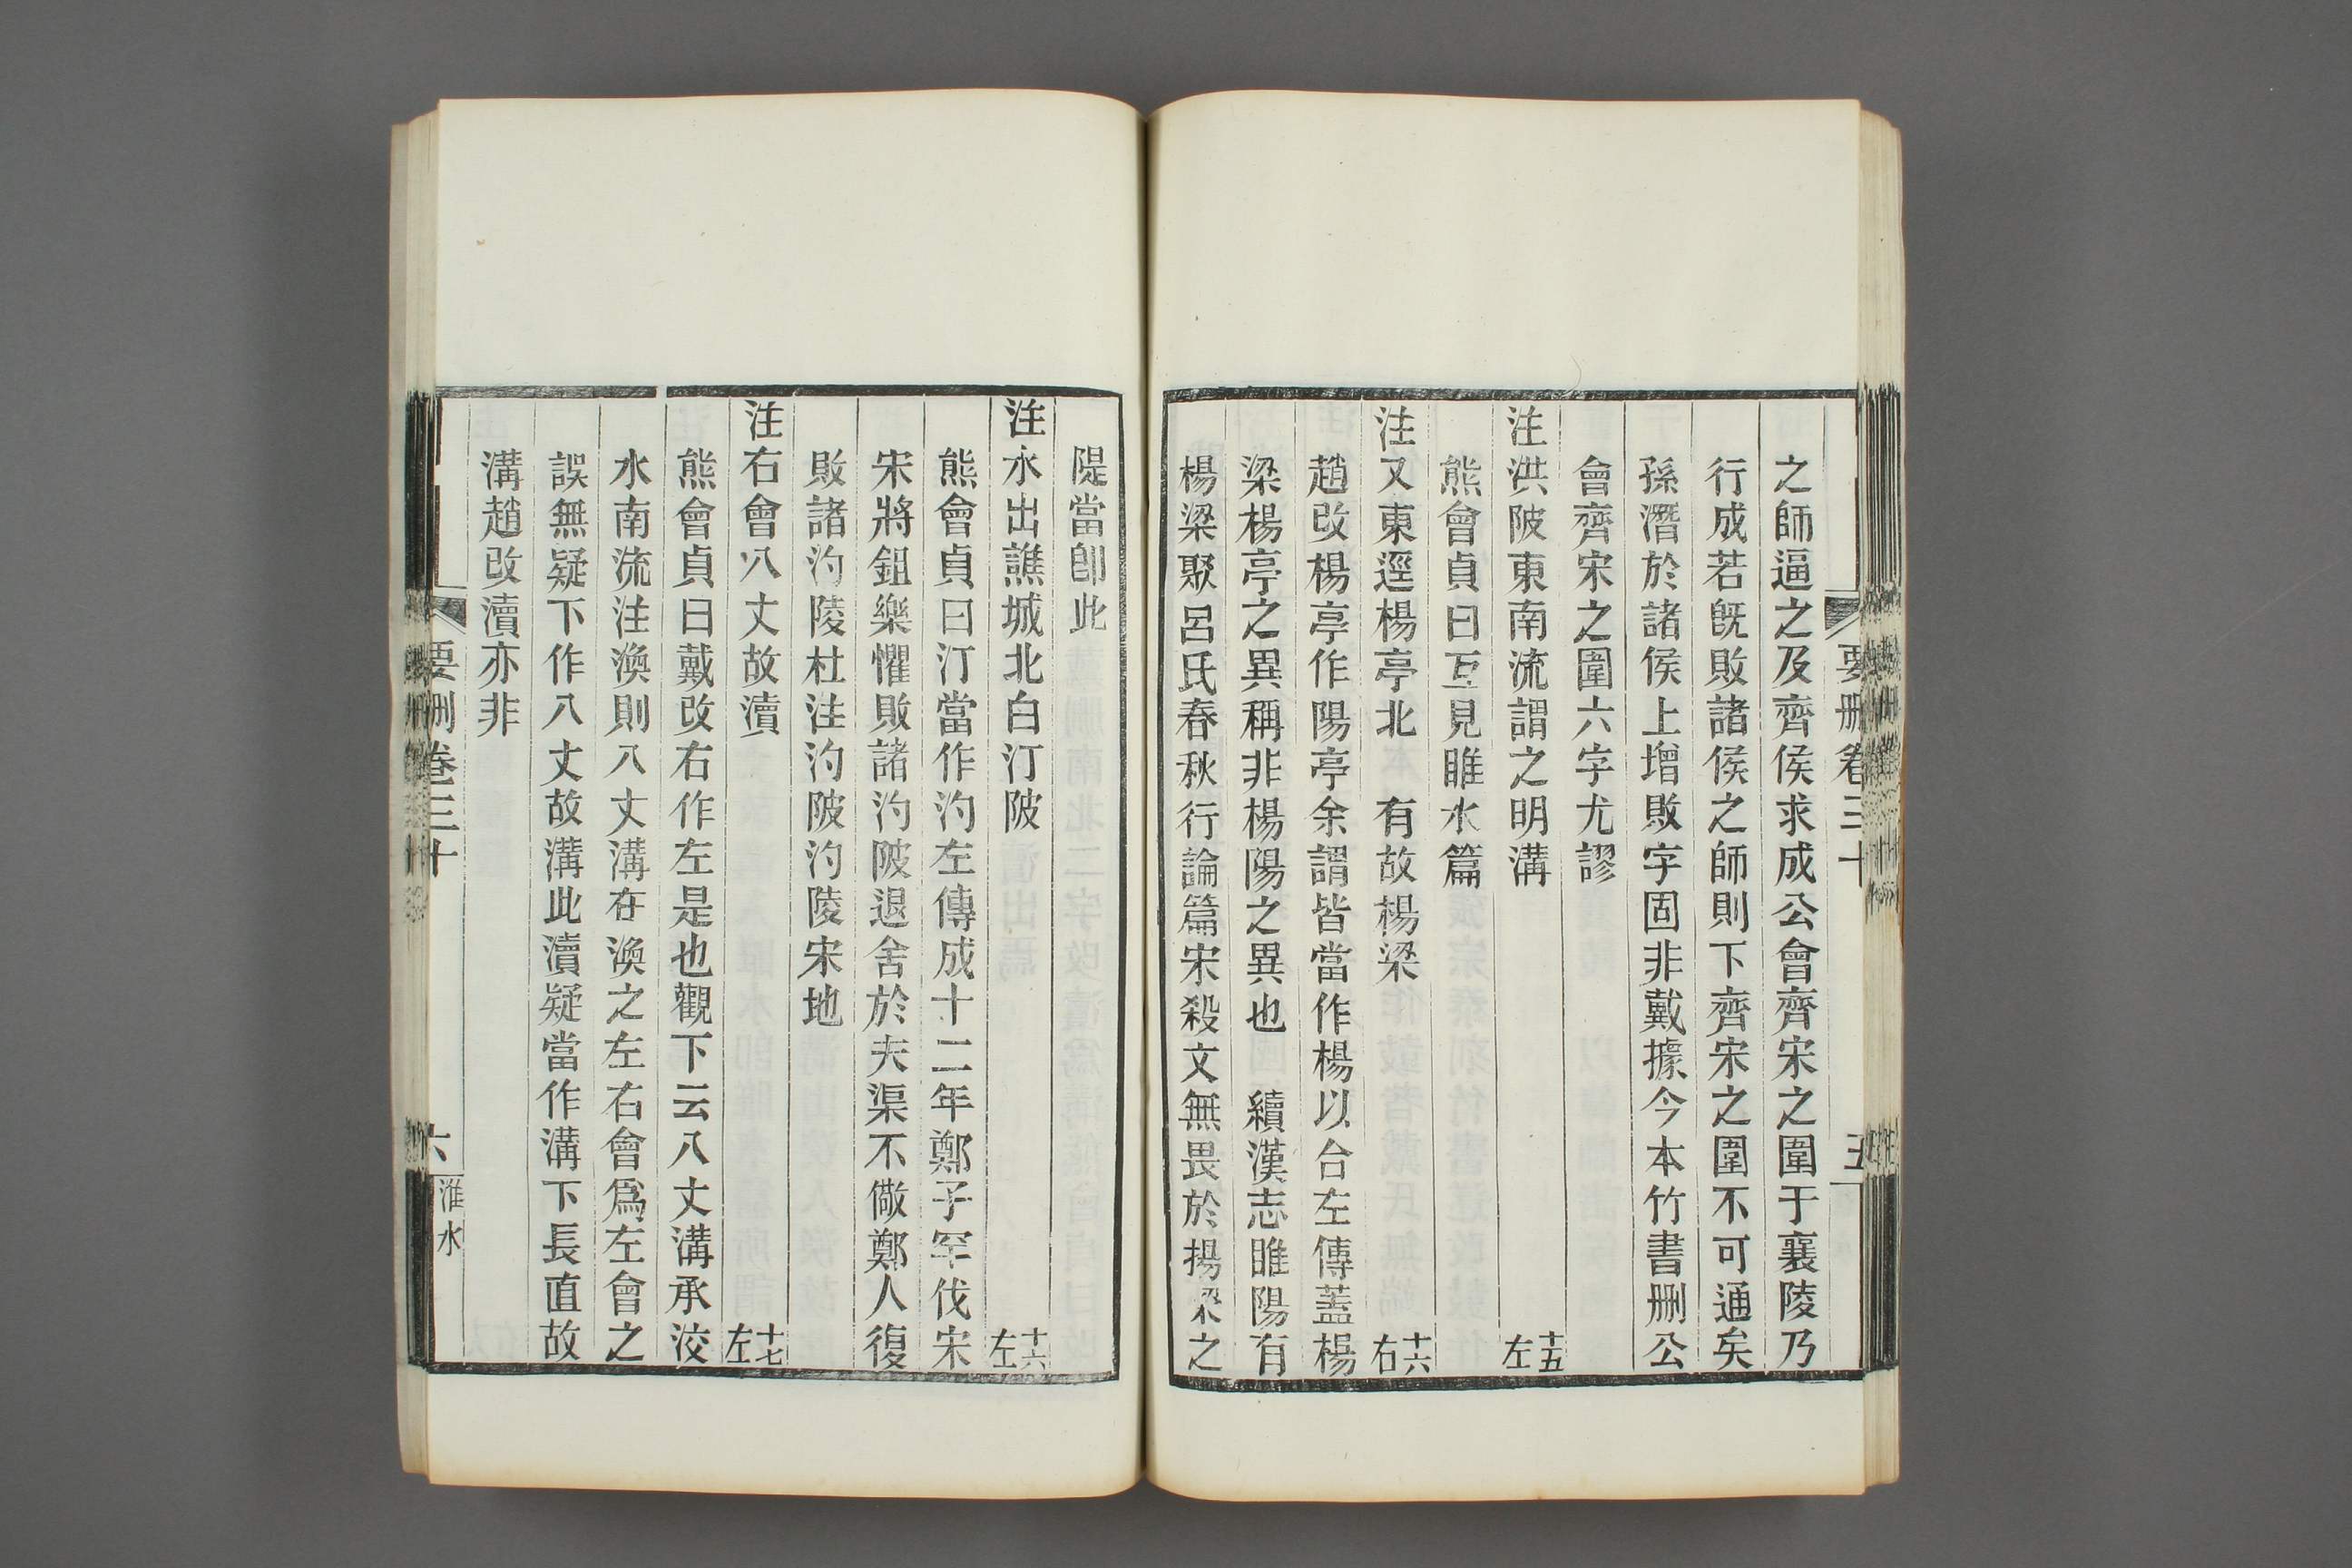 要刪卷三十
五
之師逼之及齊侯求成公會齊宋之圍于襄陵乃
行成若旣敗諸侯之師則下齊宋之圍不可通矣
孫潛於諸侯上增敗字固非戴據今本竹書刪公
會齊宋之圍六字尤謬
注洪陂東南流謂之明溝 十五左
熊會貞曰互見睢水篇
注又東逕楊亭北 有故楊梁 十六右
趙改楊亭作陽亭余謂皆當作楊以合左傳蓋楊
梁楊亭之異稱非楊陽之異也 續漢志睢陽有
楊梁聚呂氏春秋行論篇宋殺文無畏於揚梁之
隄當卽此
注水出譙城北白汀陂 十六左
熊會貞曰汀當作汋左傳成十二年鄭子罕伐宋
宋將鉏樂懼敗諸汋陂退舍於夫渠不儆鄭人復
敗諸汋陵杜注汋陂汋陵宋地
注右會八丈故瀆 十七左
熊會貞曰戴改右作左是也觀下云八丈溝承洨
水南流注渙則八丈溝在渙之左右會爲左會之
誤無疑下作八丈故溝此瀆疑當作溝下長直故
溝趙改瀆亦非
要刪卷三十
六
淮水